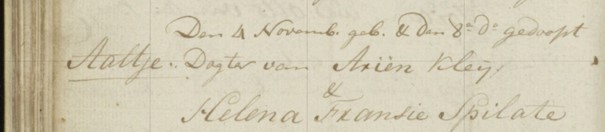 Den 4 Novemb. geb. & den 8e do gedoopt
Aaltje. Dogter van Ariën Kley.
&
Helena Fransie Spilate